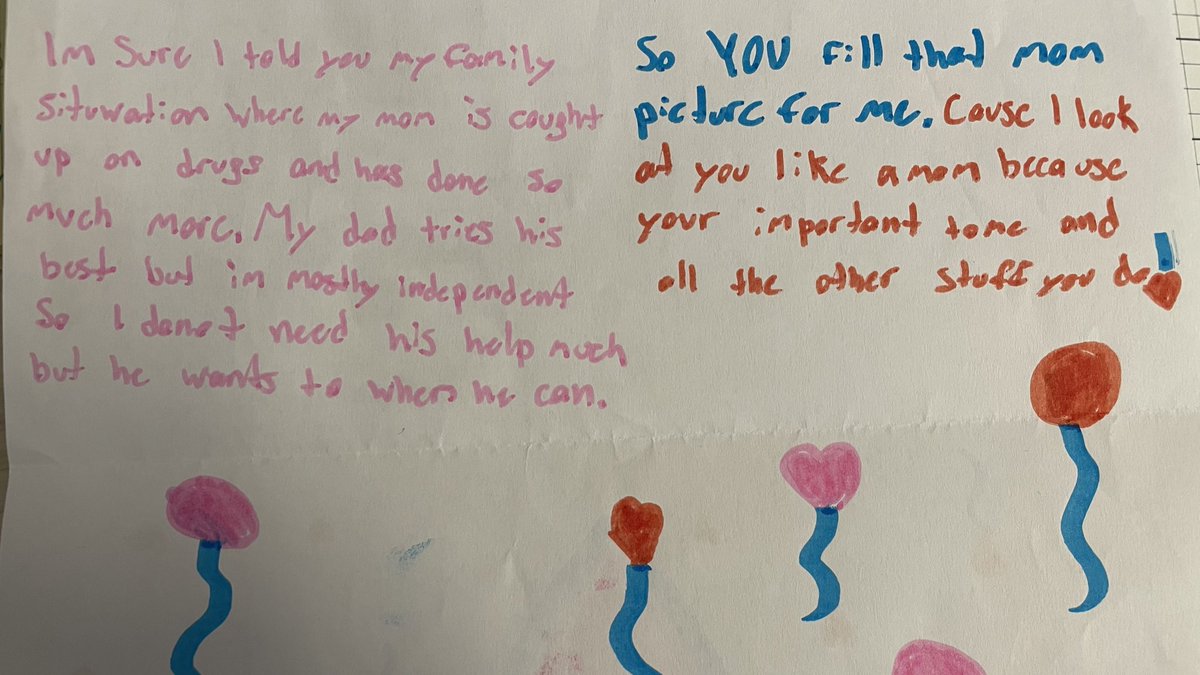 Im Sure I told you my family
Situwation where my mom is caught
up on drugs and has done so
much more. My dad tries his
best but im mostly independent
So I donot need his help much
but he wants to when he can.
So YOU fill that mom
picture for me. Cause I look
at you like a mom because
your important to me and
all the other stuff you do